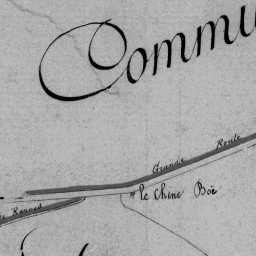 Commu
Grande Route
le Chêne Boë
de Rennes